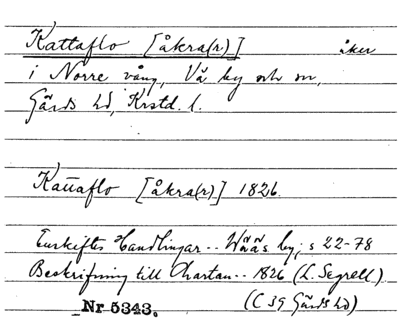 Kattaflo [åkra(r)] åker
i Norre vång, Vå by och sn,
Gärds hd, Krstd. l.
Kattaflo [åkra(r)] 1826.
Enskiftes Handlingar .. Wåås by, s 22-78
Beskrifning till Chartan .. 1826 (L. Segrell).
Nr 5343. (C 39 Gärds hd)